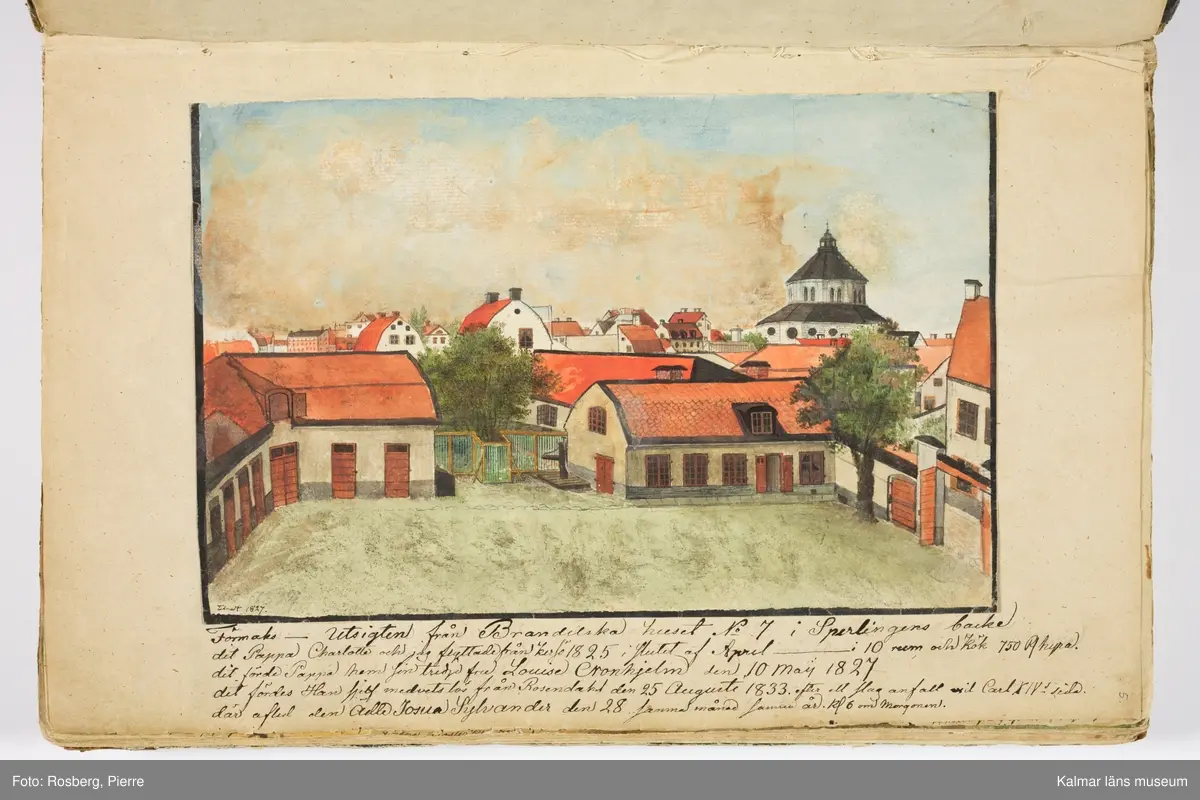 1827.
Förmaks — Utsigten från Brandelska huset No 7 i Sperlingens backe
dit Pappa Charlotte och jag flyttade från 1825 i slutet af April — i 10 rum och Kök 750 hyra.
dit förde Pappa hem sin tredje fru Louise Cronhjelm den 10 Maÿ 1827
dit fördes Han sjelf medvetslös från Rosendahl den 25 Auguste 1833. efter ett slag anfall vid Carl XIVs sida.
där afled den Ädle Josua Sylvander den 28 samma månad samma år. Kl 6 om Morgonen.
Foto: Rosberg, Pierre
Kalmar läns museum